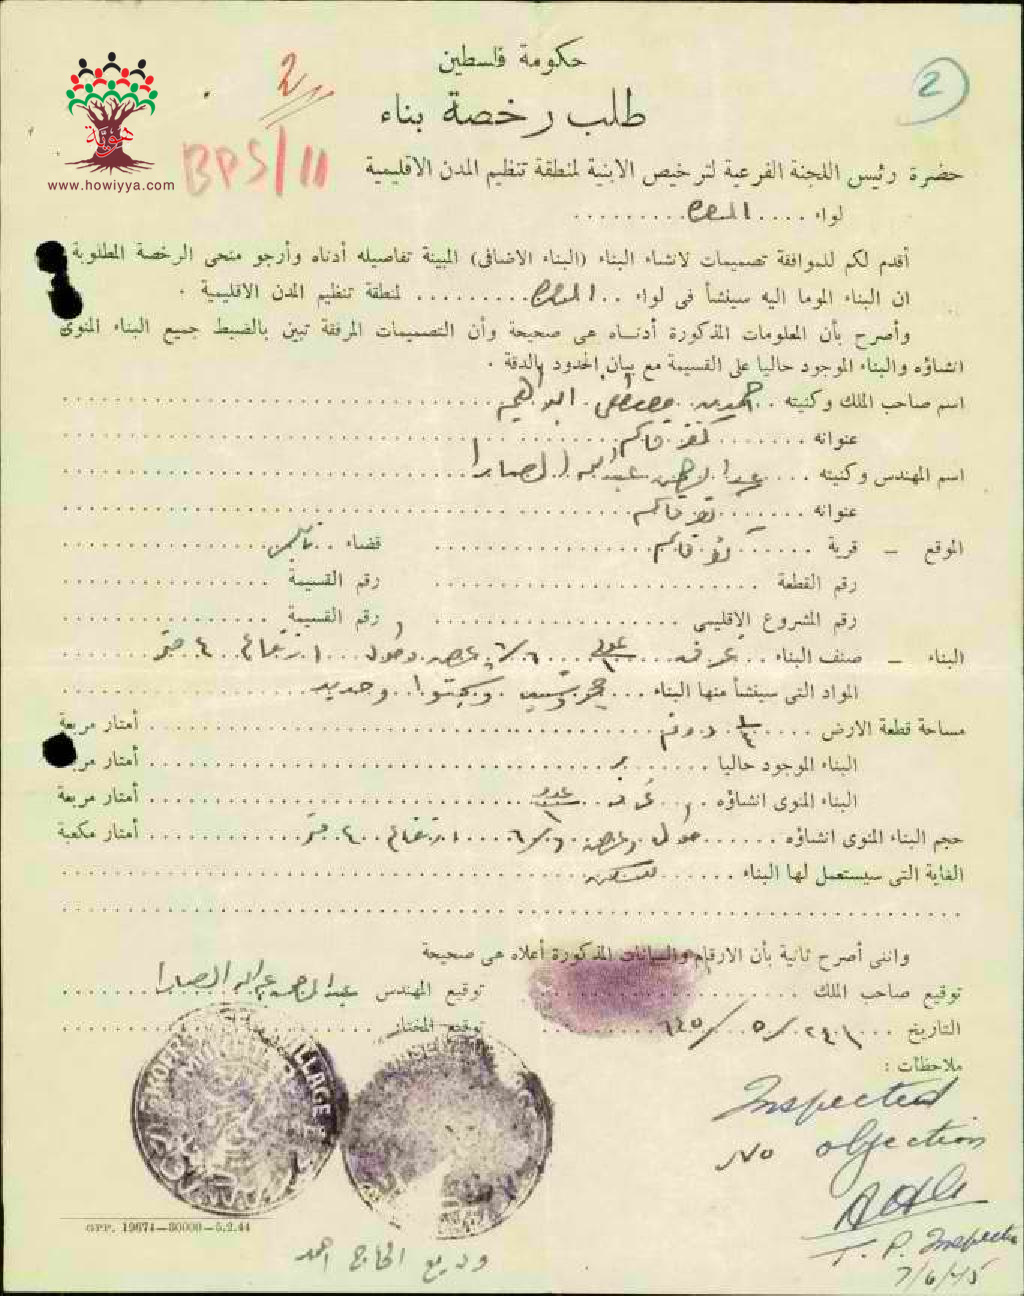 حكومة فلسطين
2
2
طلب رخصة بناء
هوية
www.howiyya.com
BPS/11
حضرة رئيس اللجنة الفرعية لترخيص الابنية لمنطقة تنظيم المدن الاقليمية
لواء
أقدم لكم للموافقة تصميمات لانشاء البناء (البناء الاضافى) المبينة تفاصيله أدناه وأرجو منحى الرخصة المطلوبة
ان البناء الموما اليه سينشأ فى لواء لمنطقة تنظيم المدن الاقليمية .
وأصرح بأن المعلومات المذكورة أدناه هى صحيحة وأن التصميمات المرفقة تبين بالضبط جميع البناء المنوى
انشاؤه والبناء الموجود حاليا على القسيمة مع بيان الحدود بالدقة .
اسم صاحب الملك وكنيته مصطفى ابراهيم
عنوانه كفر قاسم
اسم المهندس وكنيته عبد الرحمن عبد الله
عنوانه كفر قاسم
الموقع – قرية كفر قاسم قضاء نابلس
رقم القطعة رقم القسيمة
رقم المشروع الاقليمى رقم القسيمة
البناء – صنف البناء غرف عدد ١ ٦/٦ عرض وطول ارتفاع ٤ متر
المواد التى سينشأ منها البناء حجر وحديد
مساحة قطعة الارض دونم أمتار مربعة
البناء الموجود حاليا أمتار مربعة
البناء المنوى انشاؤه غرف عدد ١ أمتار مربعة
حجم البناء المنوى انشاؤه طول وعرض ٦/٦ ارتفاع ٤ متر أمتار مكعبة
الغاية التى سيستعمل لها البناء للسكن
وانى أصرح ثانية بأن الارقام والبيانات المذكورة أعلاه هى صحيحة
توقيع صاحب الملك توقيع المهندس عبد الرحمن عبد الله
التاريخ توقيع المختار
ملاحظات :
VILLAGE
Inspected
No objection
T. P. Inspector
7/6/45
GPP. 19674—30000—5.2.44
وديع الحاج احمد